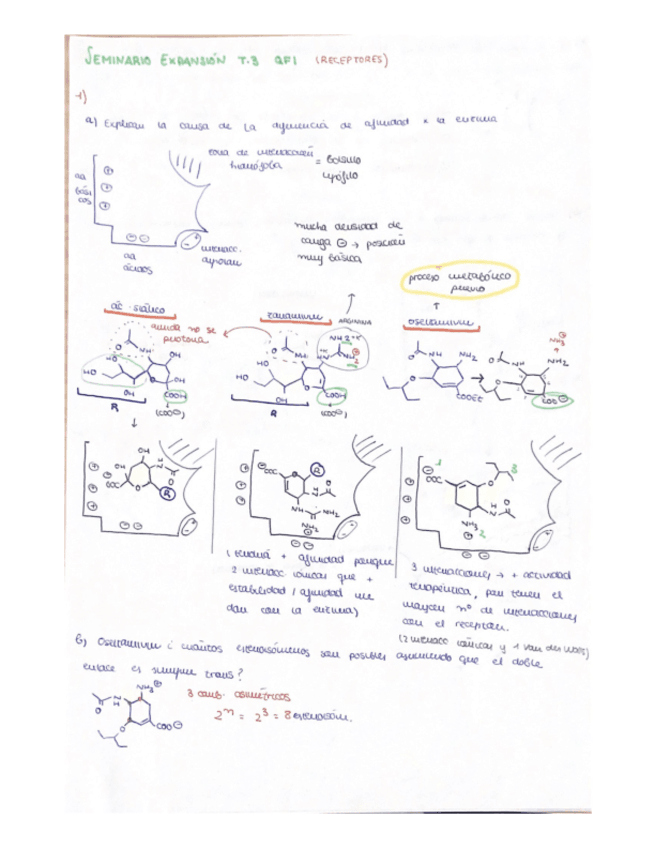 SEMINARIO EXPANSIÓN T.3 QF1 (RECEPTORES)
1)
a) Explicar la causa de la diferencia de afinidad x la enzima
zona de interacción hidrófoba = bolsillo lipófilo
aa básicos
aa ácidos
interacc.
mucha densidad de carga ⊖ → posición muy básica
proceso metabólico previo
ác. siálico
amida no se protona
zanamivir
ARGININA
oseltamivir
O
NH
OH
HO
HO
OH
OH
COOH
(COO⊖)
R
O
NH
HN
NH2
HO
HO
OH
COOH
(COO⊖)
R
O
NH
NH2
O
COOEt
O
NH
NH3
NH2
O
COO⊖
OH
OH
H
N
O
⊖OOC
O
R
⊖OOC
O
R
H
N
O
NH
NH2
NH2
1
⊖OOC
O
3
H
N
O
NH3
2
1 tendrá + afinidad porque
2 interacc. iónicas que +
estabilidad / afinidad me
dan con la enzima)
3 interacciones → + actividad
terapéutica, pues tienen el
mayor nº de interacciones
con el receptor.
(2 interacc iónicas y 1 van der waals)
b) Oseltamivir ¿cuántos estereoisómeros son posibles asumiendo que el doble
enlace es siempre trans?
NH3
H
N
O
O
COO⊖
3 carb. asimétricos
2ⁿ = 2³ = 8 estereoisóm.